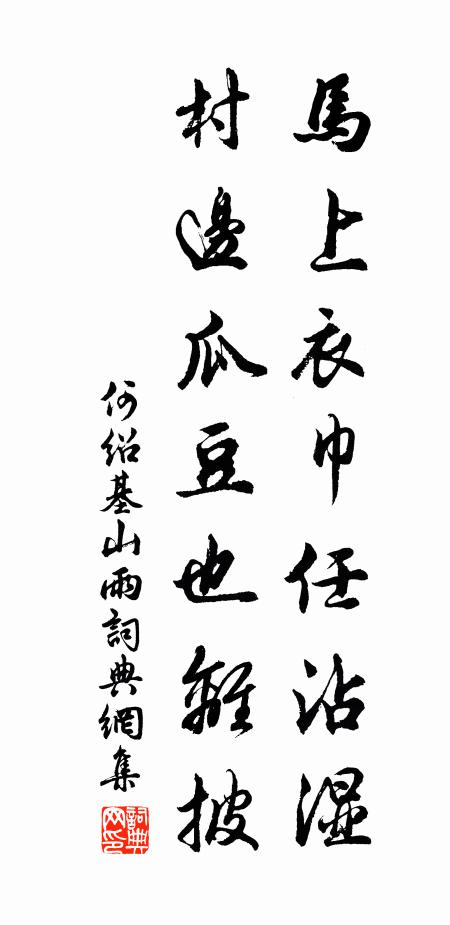 馬上衣巾任沾濕
村邊瓜豆也離披
何紹基山雨詞典網集
詞典網印